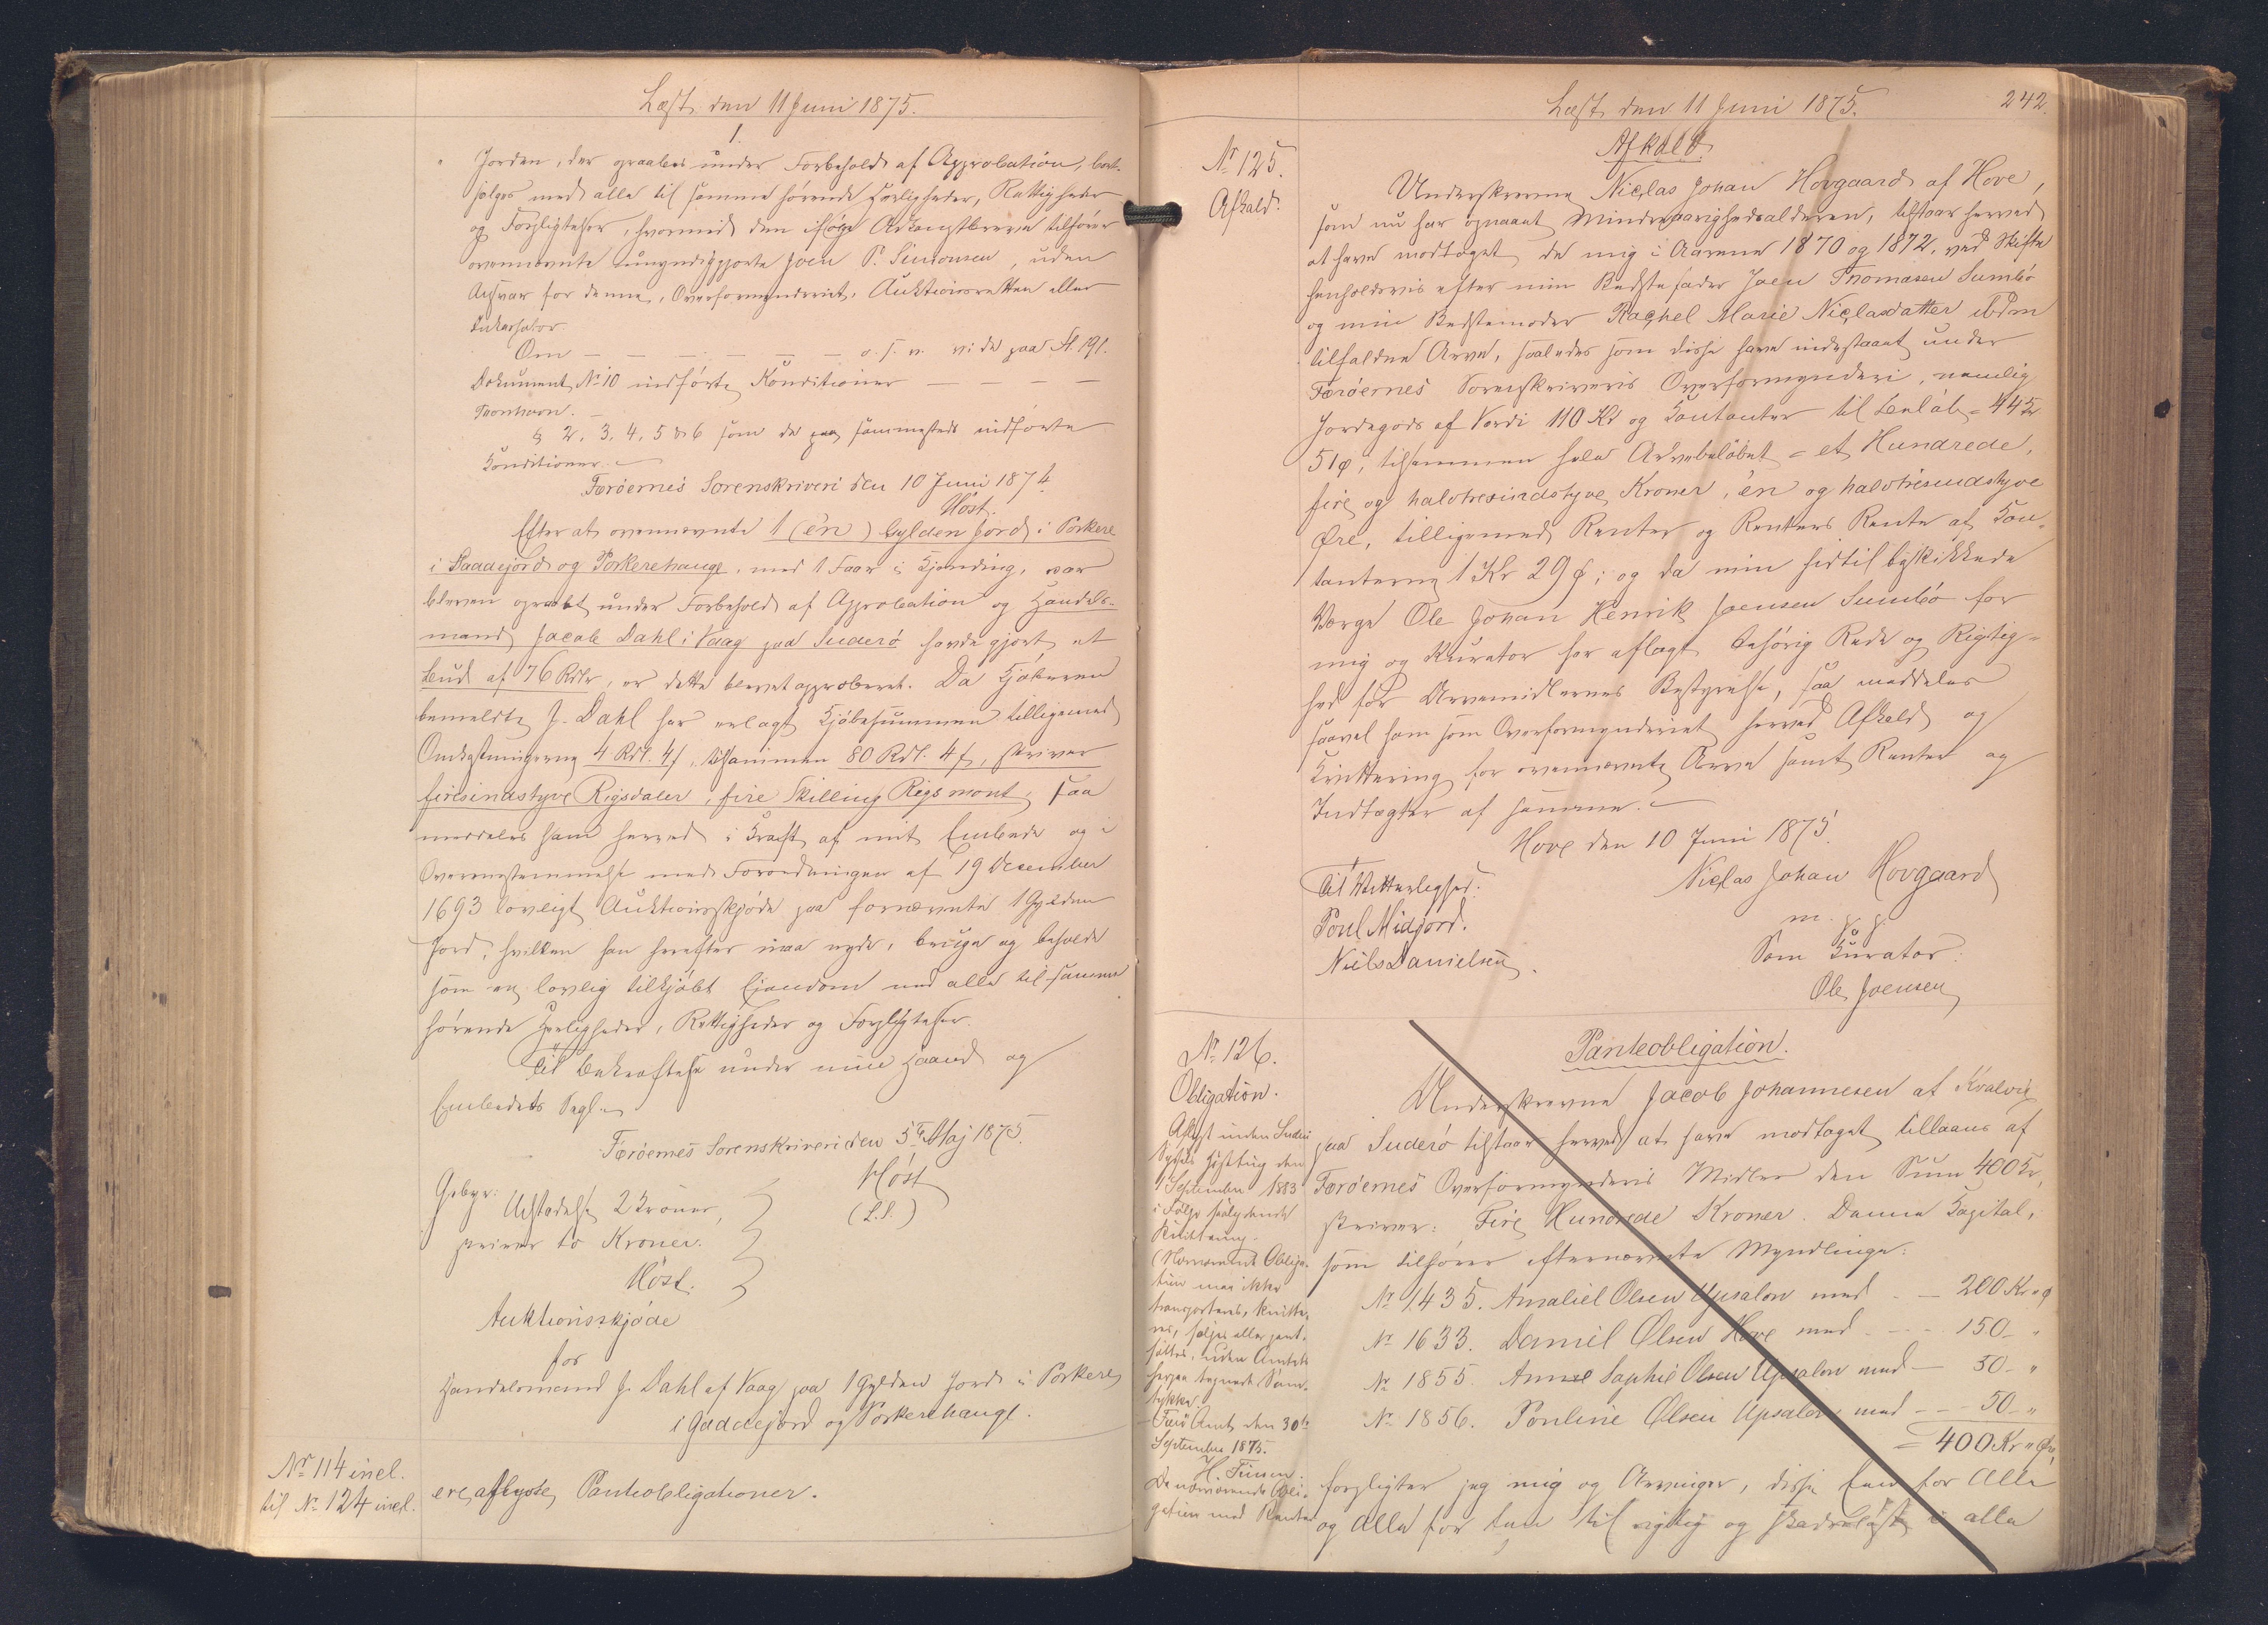 Læst den 11 Juni 1875.
1.
Jorden, der opraabes under Forbehold af Approbation, bort-
sælges med alle til samme hørende Herligheder, Rettigheder
og Forpligtelser, hvormed den ifølge Adkomstbreve tilhører
ovennævnte umyndiggjorte Joen P. Simonsen, uden
Ansvar for denne, Overformynderiet, Auktionsretten eller
Inkassator.
Om — — — — — — o. s. v. vide paa Fl. 191.
Dokument No 10 indførte Konditioner — — — —
Thorshavn.
§ 2, 3, 4, 5 & 6 som de paa sammesteds indførte
Konditioner.
Færöernes Sorenskriveri den 10 Juni 1874.
Høst.
Efter at ovennævnte 1 (én) Gylden Jord i Porkere
i Gaadejord og Porkerehauge, med 1 Faar i Kjending, var
bleven opraabt under Forbehold af Approbation og Handels-
mand Jacob Dahl i Vaag paa Suderö havde gjort et
Bud af 76 Rdlr, er dette blevet approberet. Da Kjøberen
bemeldte J. Dahl har erlagt Kjøbesummen tilligemed
Omkostningerne 4 Rdl. 4 ß, tilsammen 80 Rdl. 4 ß, skriver
firesindstyve Rigsdaler, fire Skilling Rigsmønt, saa
meddeles ham herved i Kraft af mit Embede og i
Overensstemmelse med Forordningen af 19 December
1693 lovligt Auktionsskjøde paa fornævnte 1 Gylden
Jord, hvilken han herefter maa nyde, bruge og beholde
som en lovlig tilkjøbt Ejendom med alle til samme
hørende Herligheder, Rettigheder og Forpligtelser.
Til Bekræftelse under min Haand og
Embedets Segl.
Færöernes Sorenskriveri den 5te Maj 1875.
Høst
(L.S.)
Gebyr:
Udstedelse 2 Kroner,
skriver to Kroner.
Høst.
Auktionsskjøde
for
Handelsmand J. Dahl af Vaag paa 1 Gylden Jord i Porkere
i Gaadejord og Porkerehauge.
No 114 incl.
til No 124 incl.
ere aflyste Panteobligationer.
Læst den 11 Juni 1875.
242.
No 125.
Afkald.
Afkald.
Underskrevne Niclas Johan Hovgaard af Hove,
som nu har opnaaet Mindreaarighedsalderen, tilstaar herved
at have modtaget de mig i Aarene 1870 og 1872, ved Skifte
henholdsvis efter min Bedstefader Joen Thomasen Sumbö
og min Bedstemoder Rachel Marie Niclasdatter ibdm
tilfaldne Arve, saaledes som disse have indestaaet under
Færöernes Sorenskriveris Overformynderi, nemlig
Jordegods af Værdi 110 Kr og Kontanter til Beløb = 44 Kr
51 ø, tilsammen hele Arvebeløbet = et Hundrede,
fire og halvtresindstyve Kroner, én og halvtresindstyve
Øre, tilligemed Renter og Renters Rente af Kon-
tanterne 1 Kr 29 ø; og da min hidtil beskikkede
Værge Ole Johan Henrik Joensen Sumbö for
mig og Kurator har aflagt behørig Rede og Rigtig-
hed for Arvemidlernes Bestyrelse, saa meddeles
saavel ham som Overformynderiet herved Afkald og
Kvittering for ovennævnte Arve samt Renter og
Indtægter af samme.
Hove den 10 Juni 1875.
Til Vitterlighed:
Poul Midjord.
Niels Danielsen.
Niclas Johan Hovgaard
m. f. P.
Som Kurator:
Ole Joensen
No 126.
Obligation.
Aflyst inden Suderö
Syssels Høstting den
1 September 1883
i Følge paalydende
Kvittering.
(Nærværende Obliga-
tion maa ikke
transporteres, kvitte-
res, sælges eller pant-
sættes, uden Amtets
herpaa tegnede Sam-
tykke.
Færö Amt den 30te
September 1875.
H. Finsen.
Denærværende Obli-
gation med Renter
Panteobligation.
Underskrevne Jacob Johannesen af Kvalvig
paa Suderö tilstaar herved at have modtaget tillaans af
Færöernes Overformynderis Midler den Sum 400 Kr,
skriver: Fire Hundrede Kroner. Denne Kapital,
som tilhører efternævnte Myndlinge:
No 1435. Amaliel Olsen Upsalon med — 200 Kr " ø
No 1633. Daniel Olsen Hove med — 150 - "
No 1855. Anne Sophie Olsen Upsalon med — 50 - "
No 1856. Pouline Olsen Upsalon med — 50 - "
= 400 Kr " Ø,
forpligter jeg mig og Arvinger, disse Een for Alle
og Alle for Een til rigtig og skadesløst i alle